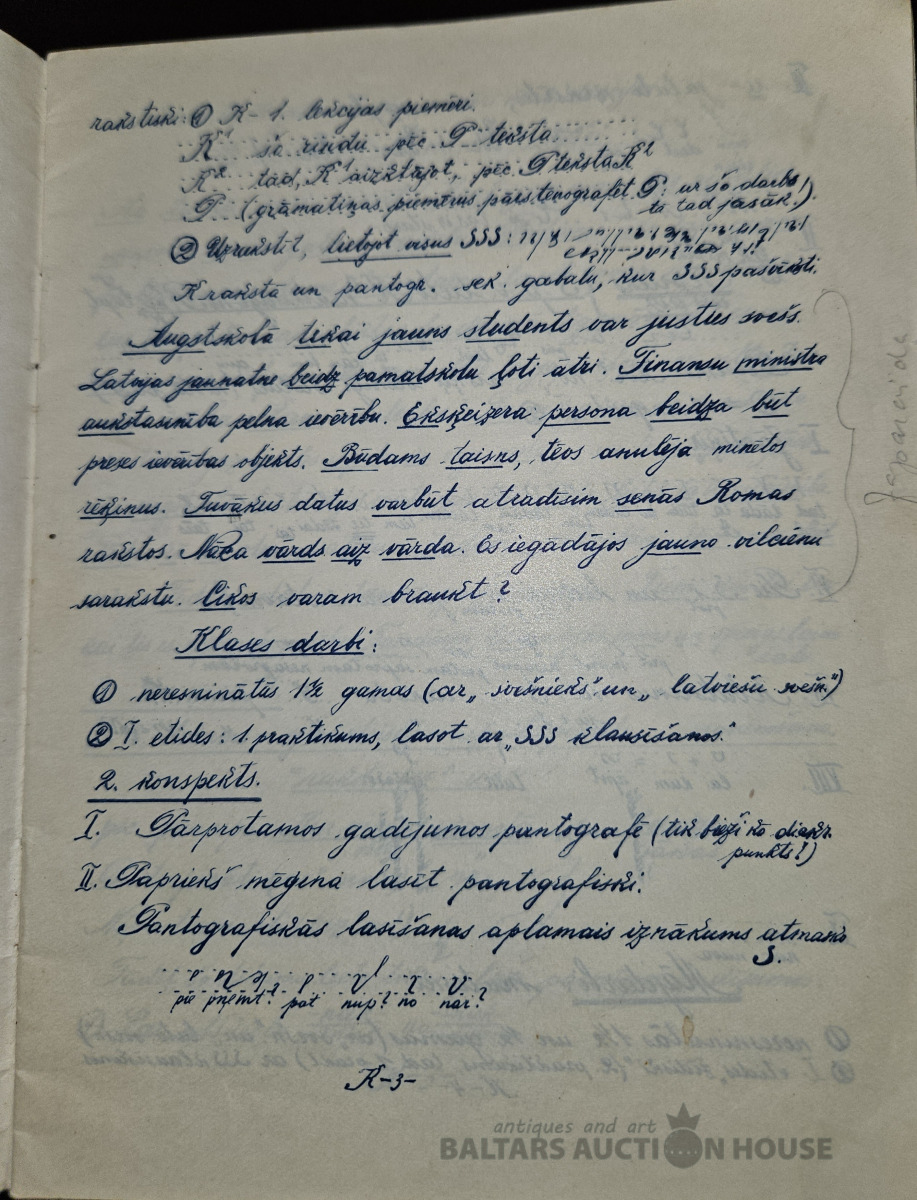 rakstiski: ① K - 1. lekcijas piemēri.
K¹ šo rindu pēc P teksta
K² tad, K¹ aizklājot, pēc P teksta K²
P (grāmatiņas piemērus pārstenografēt P: ar šo darbs
tā tad jāsāk!)
② Uzrakstīt, lietojot visus SSS:
K raksta un pantogr. sek. gabalu, kur SSS pasvītroti.
Augstskolā tikai jauns students var justies svešs.
Latvijas jaunatne beidz pamatskolu ļoti ātri. Finansu ministra
aukstasinība pelna ievērību. Ekskeizera persona beidza būt
preses ievērības objekts. Būdams taisns, tēvs anulēja minētos
rēķinus. Tuvākus datus varbūt atradīsim senās Romas
rakstos. Nāca vārds aiz vārda. Es iegādājos jauno vilcienu
sarakstu. Cikos varam braukt?
Klases darbi:
① neresninātās 1½ gamas (ar „svešnieks" un „latviešu svešn.")
② I. etides: 1. praktikums, lasot ar „SSS klausīšanos."
2. konspekts.
I. Pārprotamos gadījumos pantografē (tik bieži kā diakr.
punkts!)
II. Papriekš mēģina lasīt pantografiski.
Pantografiskās lasīšanas aplamais iznākums atmasko
S.
pie pat nup? no nar?
K-3-
antiques and art
BALTARS AUCTION HOUSE